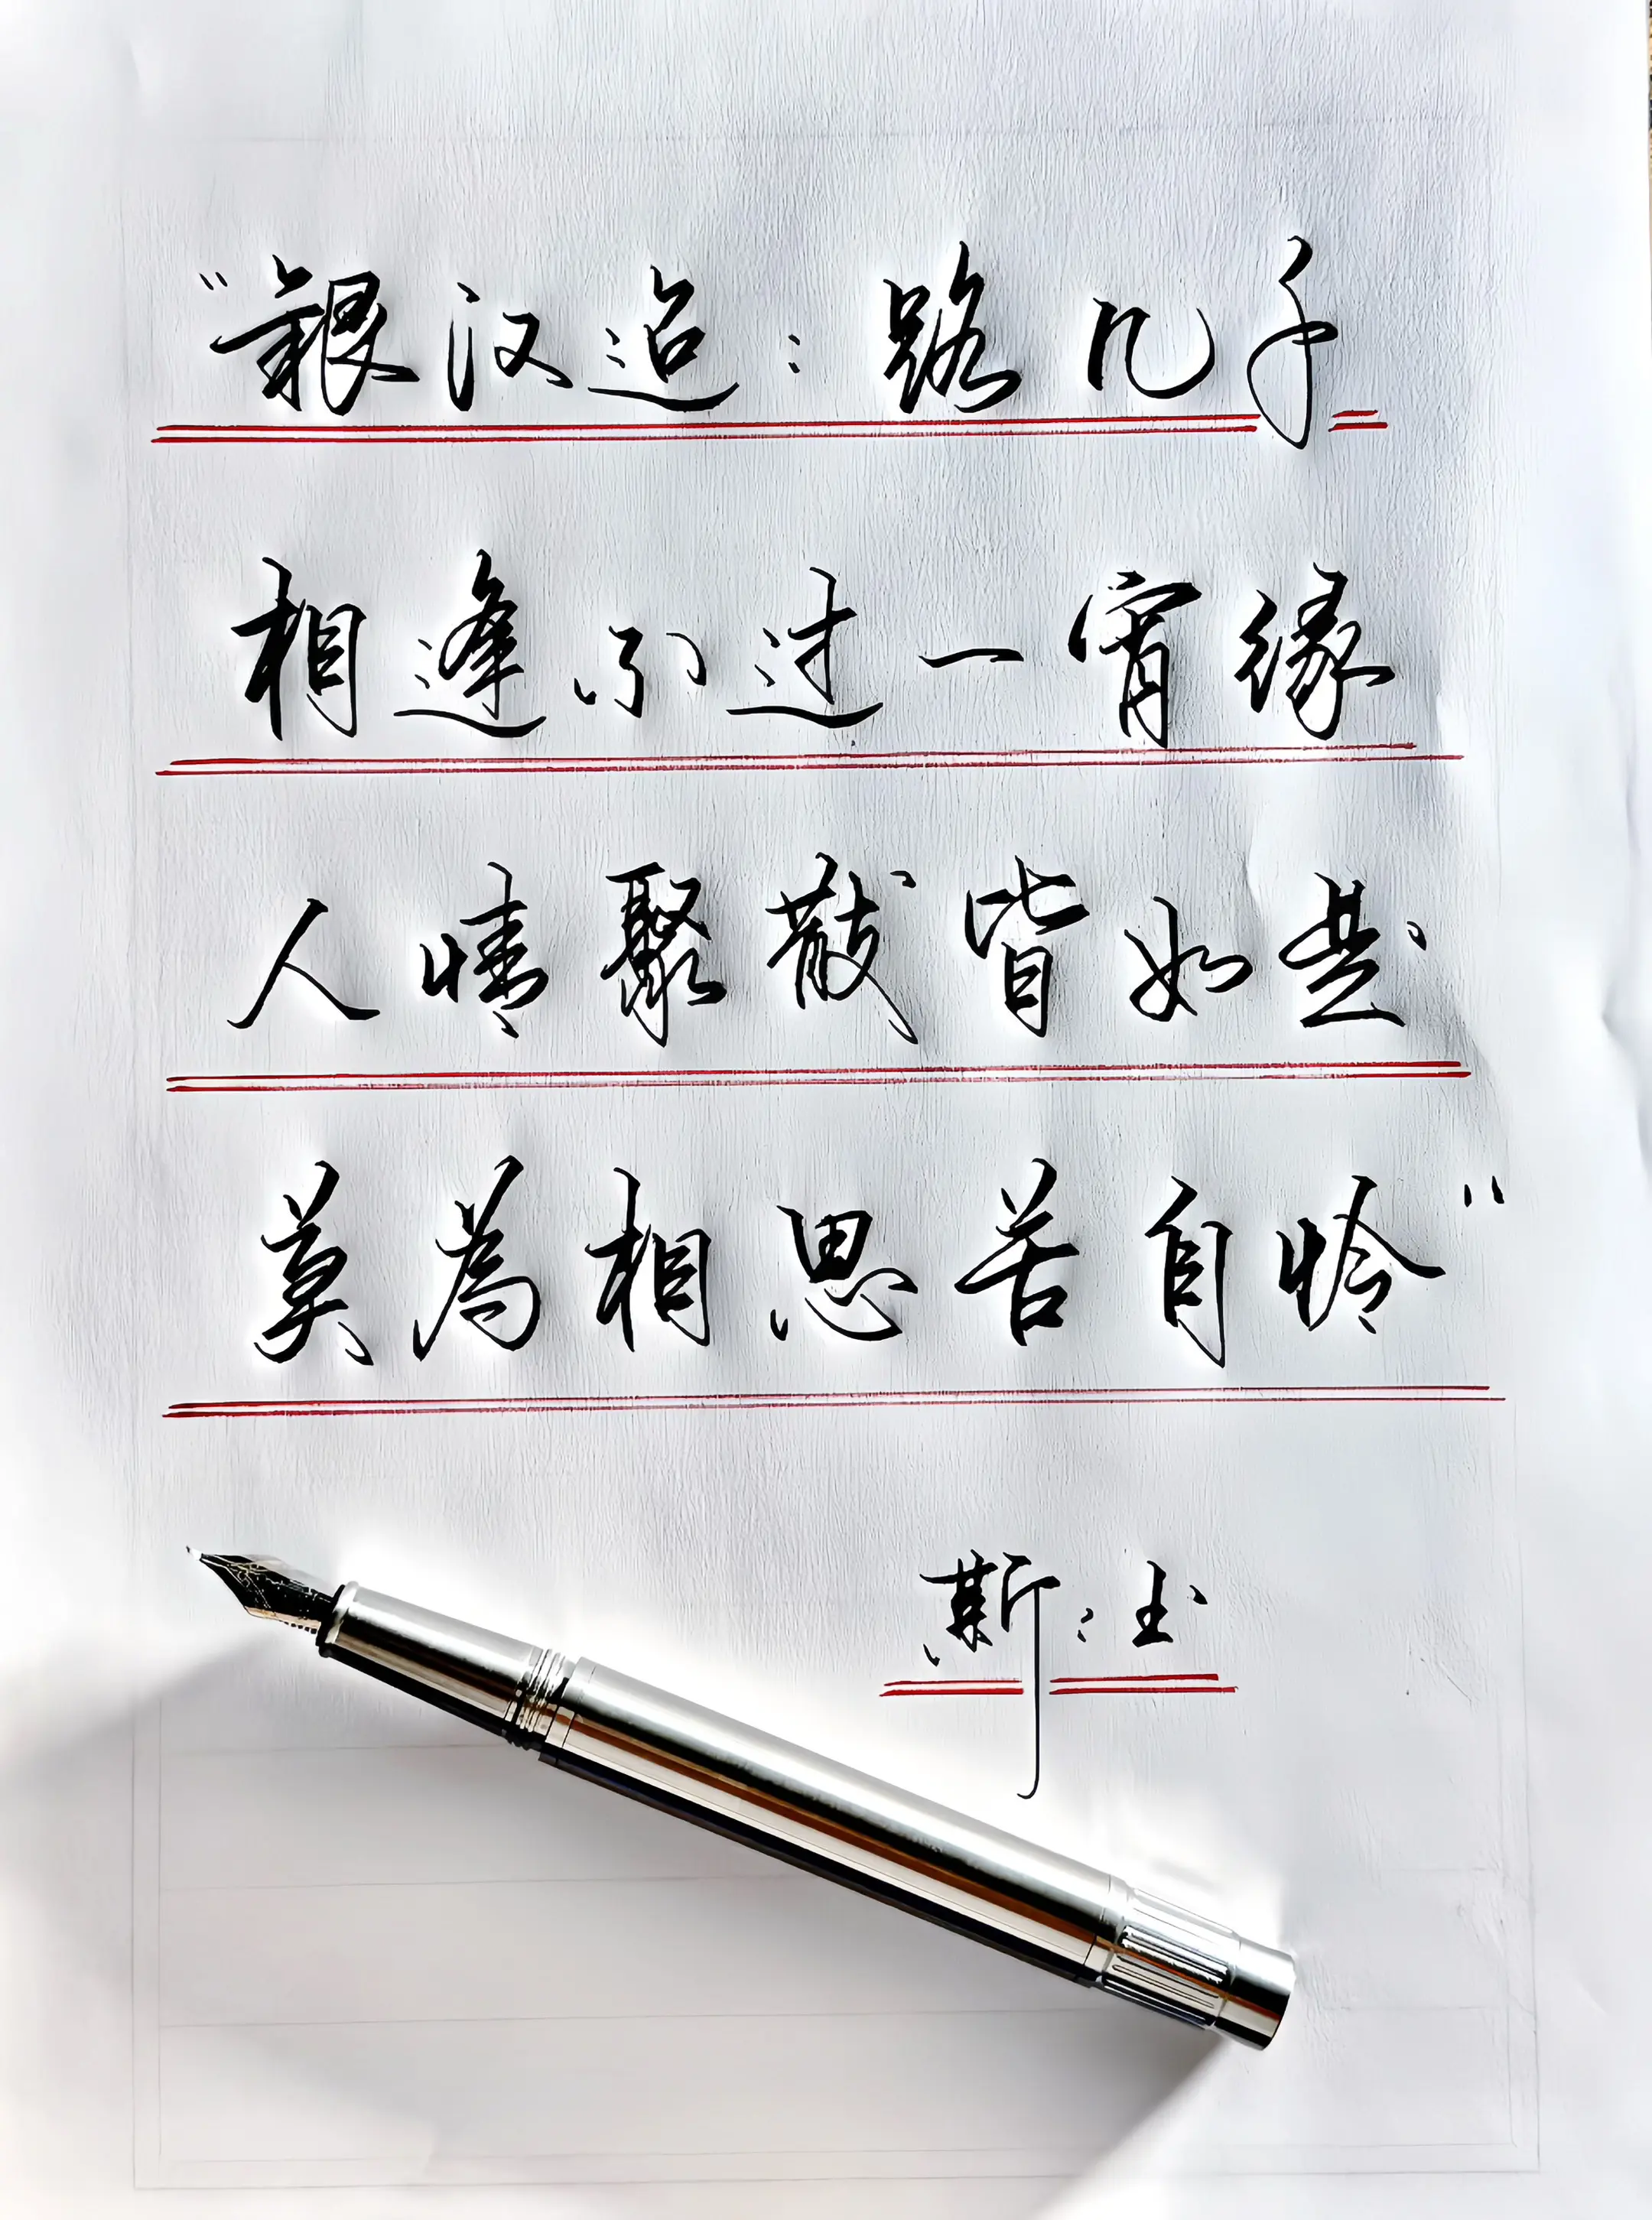 “銀汉迢：路几千
相逢不过一宵缘
人情聚散皆如
莫為相思苦自怜”
斯：土